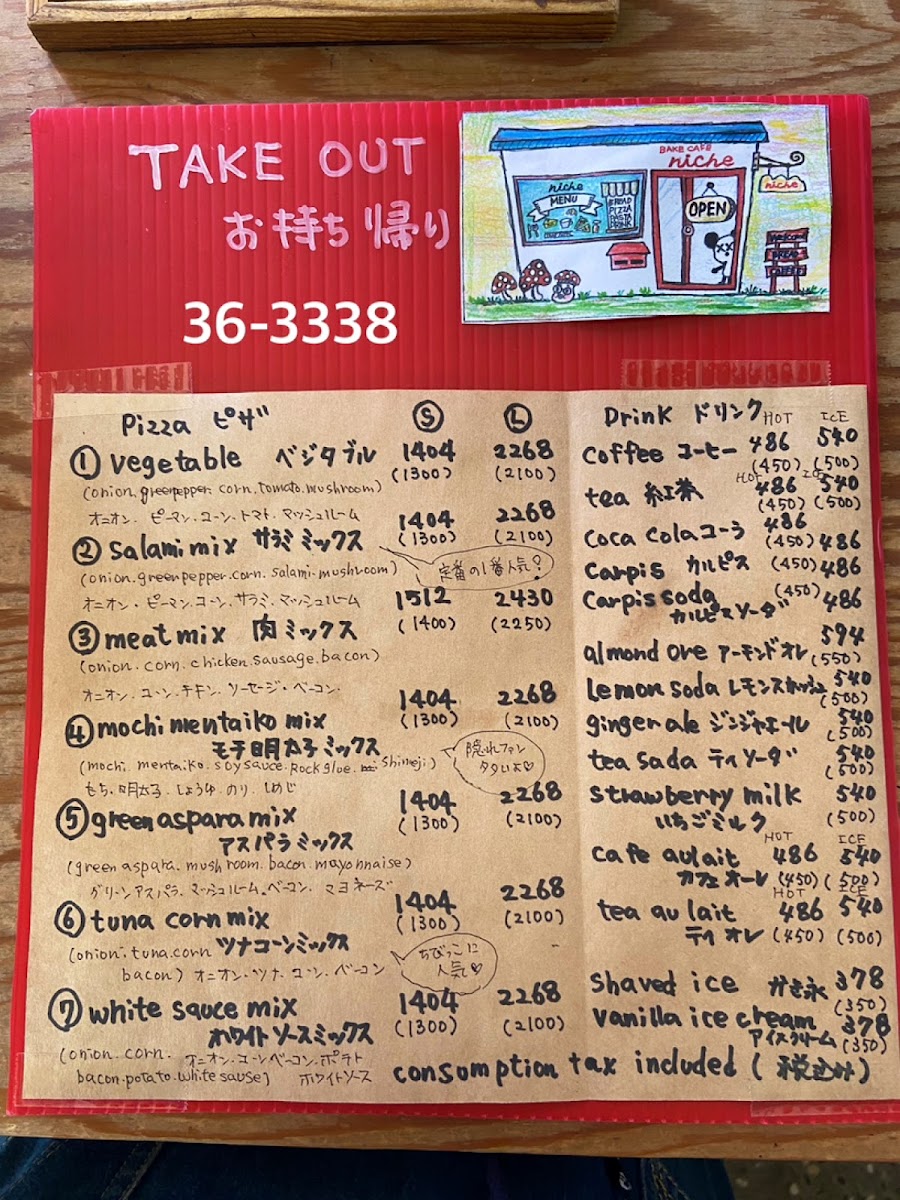 TAKE OUT
お持ち帰り
36-3338
BAKE CAFE
niche
niche
MENU
BREAD
PIZZA
PASTA
DRINK
OPEN
niche
BREAD
Pizza ピザ Ⓢ Ⓛ
① vegetable ベジタブル 1404 2268
(1300) (2100)
(onion.greenpepper.corn.tomato.mushroom)
オニオン.ピーマン.コーン.トマト.マッシュルーム
② salami mix サラミミックス 1404 2268
(1300) (2100)
定番の1番人気?
(onion.greenpepper.corn.salami.mushroom)
オニオン.ピーマン.コーン.サラミ.マッシュルーム
③ meat mix 肉ミックス 1512 2430
(1400) (2250)
(onion.corn.chicken.sausage.bacon)
オニオン.コーン.チキン.ソーセージ.ベーコン.
④ mochi mentaiko mix 1404 2268
(1300) (2100)
モチ明太子ミックス
隠れファン
タタいよ♡
(mochi.mentaiko.soysauce.Rockglue.shimeji)
もち.明太子.しょうゆ.のり.しめじ
⑤ green aspara mix 1404 2268
(1300) (2100)
アスパラミックス
(green aspara.mushroom.bacon.mayonnaise)
グリーンアスパラ.マッシュルーム.ベーコン.マヨネーズ
⑥ tuna corn mix 1404 2268
(1300) (2100)
ツナコーンミックス
(onion.tuna.corn
bacon) オニオン.ツナ.コーン.ベーコン
ちびっこに
人気♡
⑦ white sauce mix 1404 2268
(1300) (2100)
ホワイトソースミックス
(onion.corn. オニオン.コーン.ベーコン.ポテト
bacon.potato.white sause) ホワイトソース
Drink ドリンク HOT ICE
coffee コーヒー 486 540
(450) (500)
HOT ICE
tea 紅茶 486 540
(450) (500)
coca cola コーラ 486
(450)
carpis カルピス 486
(450)
carpis soda 486
(450)
カルピスソーダ
almond ore アーモンドオレ 594
(550)
Lemon soda レモンスカッシュ 540
(500)
ginger ale ジンジャエール 540
(500)
tea sada ティソーダ 540
(500)
strawberry milk 540
いちごミルク (500)
HOT ICE
cafe aulait 486 540
カフェオーレ (450) (500)
HOT ICE
tea au lait 486 540
ティオレ (450) (500)
shaved ice かき氷 378
(350)
vanilla ice cream 378
アイスクリーム (350)
consumption tax included (税込み)